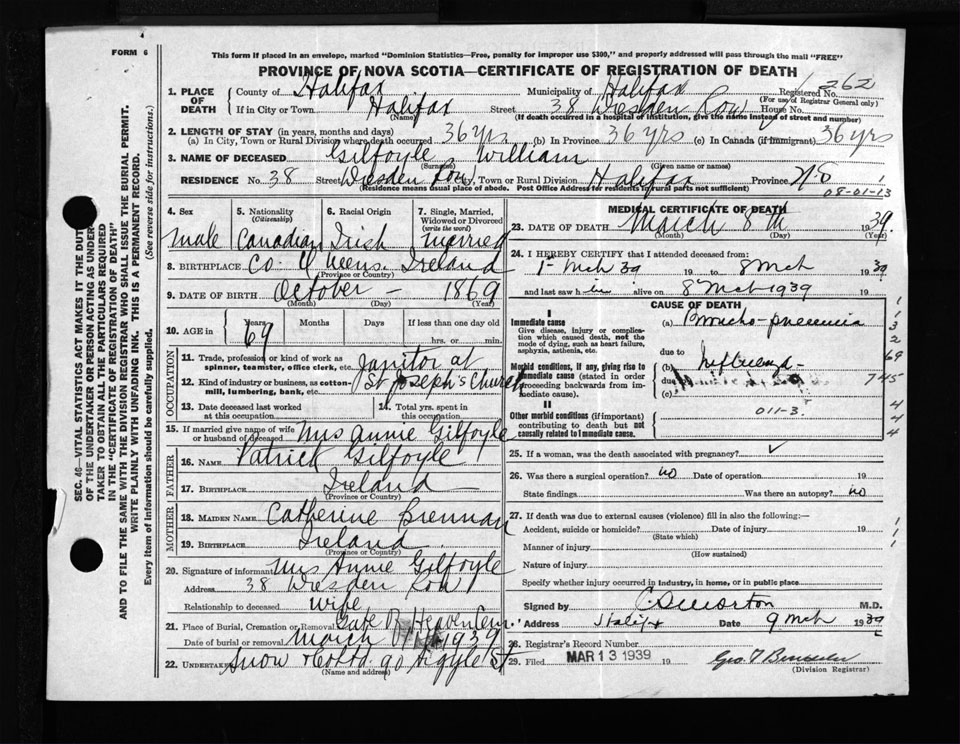 FORM 6
This form if placed in an envelope, marked "Dominion Statistics—Free, penalty for improper use $300," and properly addressed will pass through the mail "FREE"
PROVINCE OF NOVA SCOTIA—CERTIFICATE OF REGISTRATION OF DEATH
1. PLACE OF DEATH County of Halifax Municipality of Halifax Registered No. 262
(For use of Registrar General only)
If in City or Town Halifax Street 38 Dresden Row House No.
(Name) (If death occurred in a hospital of institution, give the name instead of street and number)
2. LENGTH OF STAY (in years, months and days)
(a) In City, Town or Rural Division where death occurred 36 yrs (b) In Province 36 yrs (c) In Canada (if immigrant) 36 yrs
3. NAME OF DECEASED Gilfoyle, William
(Surname) (Given name or names)
RESIDENCE No. 38 Street Dresden Row City, Town or Rural Division Halifax Province N S
(Residence means usual place of abode. Post Office Address for residents in rural parts not sufficient)
08-01-13
4. Sex 5. Nationality (Citizenship) 6. Racial Origin 7. Single, Married, Widowed or Divorced (write the word)
Male Canadian Irish Married
8. BIRTHPLACE Co. Ireland
(Province or Country)
9. DATE OF BIRTH October – 1869
(Month) (Day) (Year)
10. AGE in Years Months Days If less than one day old
69 hrs. or min.
OCCUPATION
11. Trade, profession or kind of work as spinner, teamster, office clerk, etc. Janitor at
12. Kind of industry or business, as cotton-mill, lumbering, bank, etc. St Joseph's Church
13. Date deceased last worked at this occupation 14. Total yrs. spent in this occupation
15. If married give name of wife or husband of deceased Mrs Annie Gilfoyle
FATHER
16. NAME Patrick Gilfoyle
17. BIRTHPLACE Ireland
(Province or Country)
MOTHER
18. MAIDEN NAME Catherine Brennan
19. BIRTHPLACE Ireland
(Province or Country)
20. Signature of informant Mrs Annie Gilfoyle
Address 38 Dresden Row
Relationship to deceased wife
21. Place of Burial, Cremation or Removal Gate of Heaven Cem.
Date of burial or removal March 1939
22. UNDERTAKER Snow & Co Ltd 90 Argyle St
(Name and address)
MEDICAL CERTIFICATE OF DEATH
23. DATE OF DEATH March 8th 1939.
(Month) (Day) (Year)
24. I HEREBY CERTIFY that I attended deceased from:
1st Mch 39 19 to 8 Mch 1939
and last saw him alive on 8 Mch 1939 19
CAUSE OF DEATH
I
Immediate cause (a) Broncho-pneumonia
Give disease, injury or complication which caused death, not the mode of dying, such as heart failure, asphyxia, asthenia, etc.
due to
Morbid conditions, if any, giving rise to immediate cause (stated in order proceeding backwards from immediate cause). (b) Influenza
due to
(c)
II
Other morbid conditions (if important) contributing to death but not causally related to immediate cause. 011-3.
1
1
3
2
69
745
4
4
4
25. If a woman, was the death associated with pregnancy? ✓
26. Was there a surgical operation? no Date of operation 19
State findings Was there an autopsy? no
27. If death was due to external causes (violence) fill in also the following:—
Accident, suicide or homicide? Date of injury 19
(State which)
Manner of injury
(How sustained)
Nature of injury
Specify whether injury occurred in industry, in home, or in public place
1
1
1
Signed by M.D.
Address Halifax Date 9 Mch 1939
28. Registrar's Record Number
29. Filed MAR 13 1939 19
(Division Registrar)
SEC. 46—VITAL STATISTICS ACT MAKES IT THE DUTY
OF THE UNDERTAKER OR PERSON ACTING AS UNDER-
TAKER TO OBTAIN ALL THE PARTICULARS REQUIRED
IN THE "CERTIFICATE OF REGISTRATION OF DEATH"
AND TO FILE THE SAME WITH THE DIVISION REGISTRAR WHO SHALL ISSUE THE BURIAL PERMIT.
WRITE PLAINLY WITH UNFADING INK. THIS IS A PERMANENT RECORD.
Every item of information should be carefully supplied. (See reverse side for instructions.)